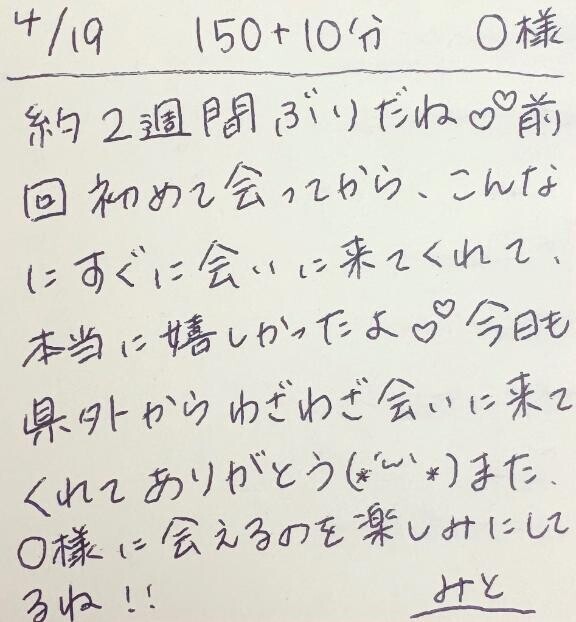 4/19 150+10分 〇様
約2週間ぶりだね♡♡前
回初めて会ってから、こんな
にすぐに会いに来てくれて、
本当に嬉しかったよ♡♡今日も
県外からわざわざ会いに来て
くれてありがとう(*´ω`*)また、
〇様に会えるのを楽しみにして
るね!! みと